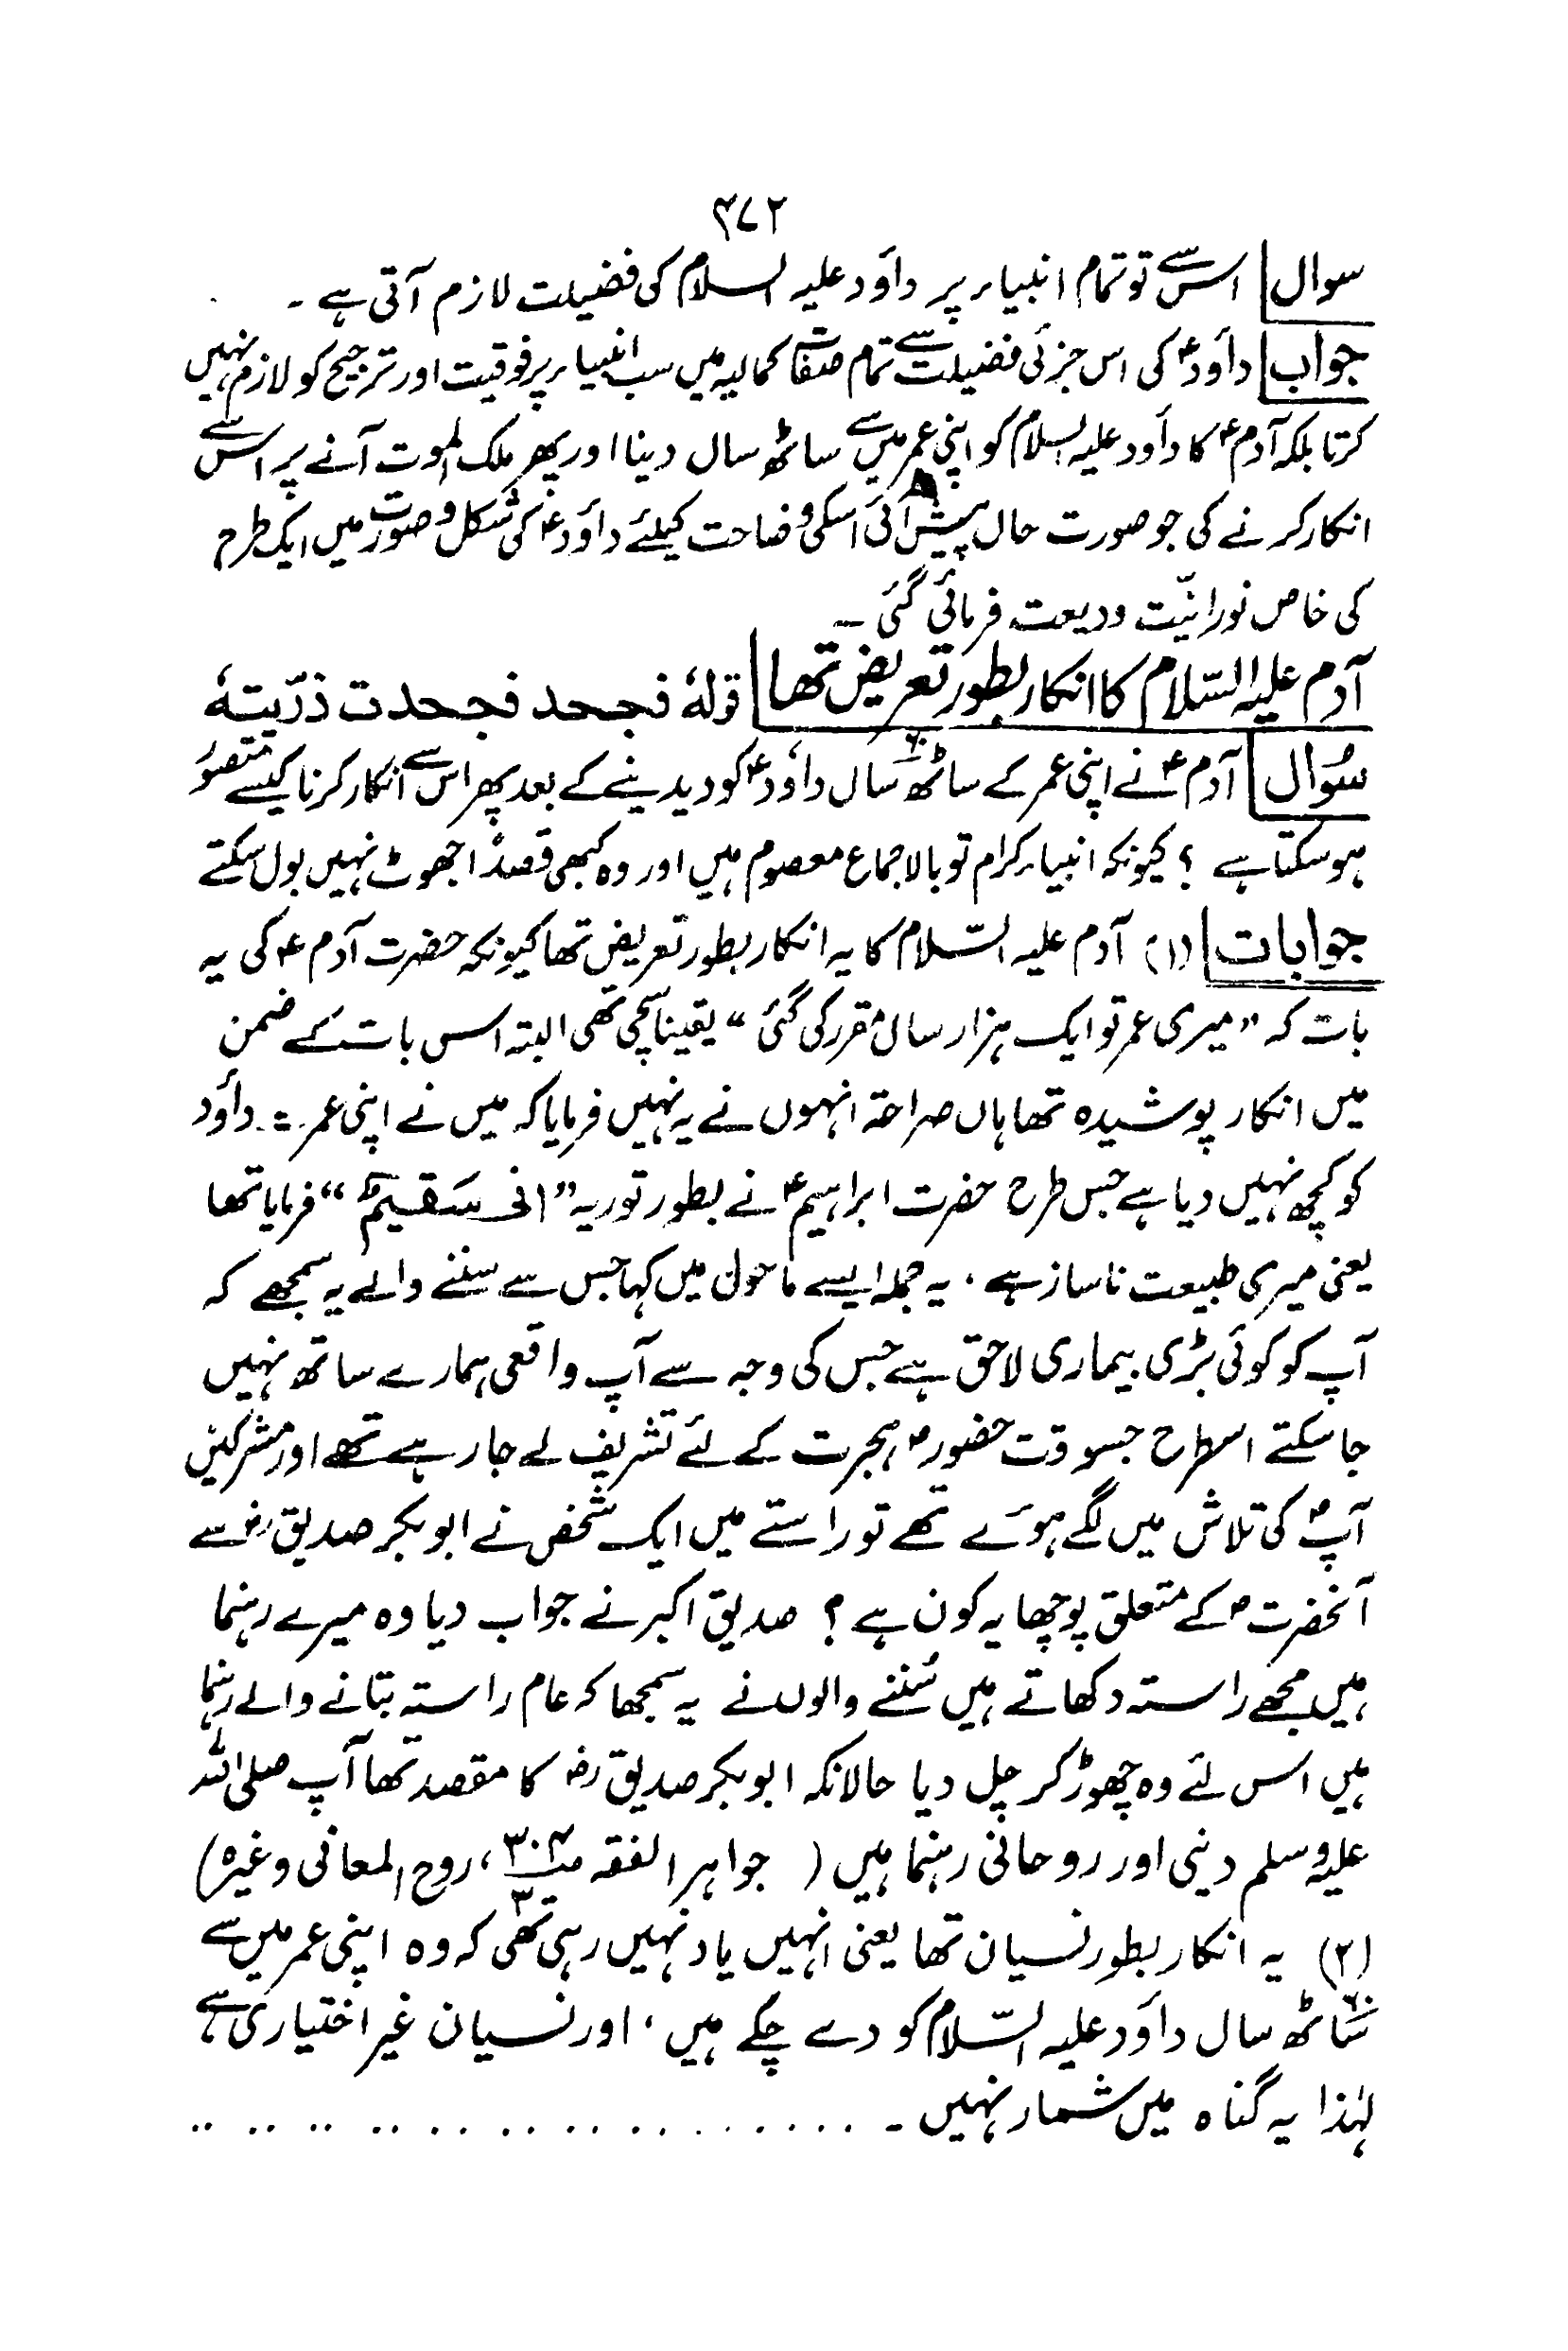 ۴۷۲
سوال اس سے تو تمام انبیاء پر داؤد علیہ السلام کی فضیلت لازم آتی ہے ۔
جواب داؤد ؑ کی اس جزئی فضیلت سے تمام صفات کمالیہ میں سب انبیاء پر فوقیت اور ترجیح کو لازم نہیں
کرتا بلکہ آدم ؑ کا داؤد علیہ السلام کو اپنی عمر میں سے ساٹھ سال دینا اور پھر ملک الموت آنے پر اس سے
انکار کرنے کی جو صورت حال پیش آئی اسکی وضاحت کیلئے داؤد ؑ کی شکل و صورت میں ایک طرح
کی خاص نورانیّت ودیعت فرمائی گئی ۔
آدم علیہ السّلام کا انکار بطور تعریض تھا قولہٗ فجحد فجحدت ذرّیتہٗ
سُوال آدم ؑ نے اپنی عمر کے ساٹھ ۶۰ سال داؤد ؑ کو دیدینے کے بعد پھر اس سے انکار کرنا کیسے متصوّر
ہو سکتا ہے ؟ کیونکہ انبیاء کرام تو بالاجماع معصوم ہیں اور وہ کبھی قصداً جھوٹ نہیں بول سکتے
جوابات (۱) آدم علیہ السّلام کا یہ انکار بطور تعریض تھا کیونکہ حضرت آدم ؑ کی یہ
بات کہ "میری عمر تو ایک ہزار سال مقرر کی گئی" یقینا سچی تھی البتہ اس بات کے ضمن
میں انکار پوشیدہ تھا ہاں صراحۃ انہوں نے یہ نہیں فرمایا کہ میں نے اپنی عمر = داؤد
کو کچھ نہیں دیا ہے جس طرح حضرت ابراہیم ؑ نے بطور توریہ "انی سَقیمٌ" فرمایا تھا
یعنی میری طبیعت ناساز ہے ، یہ جملہ ایسے ماحول میں کہا جس سے سننے والے یہ سمجھے کہ
آپ کو کوئی بڑی بیماری لاحق ہے جس کی وجہ سے آپ واقعی ہمارے ساتھ نہیں
جا سکتے اسطرح جسوقت حضور ؐ ہجرت کے لئے تشریف لے جا رہے تھے اور مشرکین
آپؐ کی تلاش میں لگے ہوئے تھے تو راستے میں ایک شخص نے ابوبکر صدیق رض سے
آنحضرت ؐ کے متعلق پوچھا یہ کون ہے ؟ صدیق اکبر نے جواب دیا وہ میرے رہنما
ہیں مجھے راستہ دکھاتے ہیں سُننے والوں نے یہ سمجھا کہ عام راستہ بتانے والے رہنما
ہیں اس لئے وہ چھوڑ کر چل دیا حالانکہ ابوبکر صدیق رض کا مقصد تھا آپ صلی اللہ
علیہ وسلم دینی اور روحانی رہنما ہیں ( جواہر الفقہ صـ۳۰۴/۳، روح المعانی وغیرہ)
(۲) یہ انکار بطور نسیان تھا یعنی انہیں یاد نہیں رہی تھی کہ وہ اپنی عمر میں سے
ساٹھ ۶۰ سال داؤد علیہ السّلام کو دے چکے ہیں ، اور نسیان غیر اختیاری ہے
لہٰذا یہ گناہ میں شمار نہیں ۔ . . . . . . . . . . . . . . . . . .